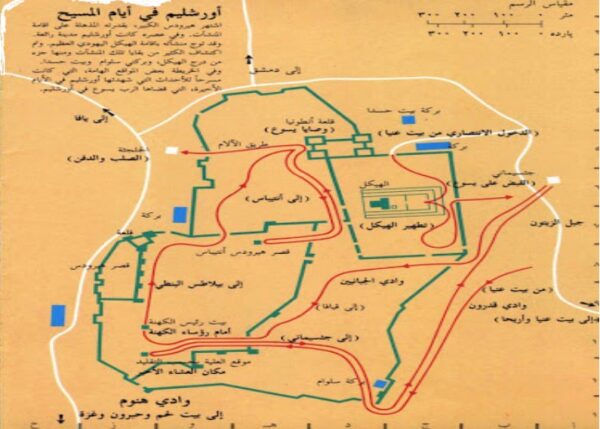 أورشليم في أيام المسيح
اشتهر هيرودس الكبير، بقدرته المذهلة على اقامة
المنشآت. وفي عصره كانت أورشليم مدينة رائعة.
وقد توج منشآته باقامة الهيكل اليهودي العظيم. وتم
اكتشاف الكثير من بقايا تلك المنشآت ومنها جزء
من درج الهيكل، وبركتي سلوام وبيت حسدا.
وفي الخريطة بعض المواقع الهامة، التي كانت
مسرحاً للأحداث التي شهدتها أورشليم في الأيام
الأخيرة، التي قضاها الرب يسوع في أورشليم.
مقياس الرسم
متر ١٠٠ ٢٠٠ ٣٠٠
يارده ١٠٠ ٢٠٠ ٣٠٠
إلى دمشق
إلى يافا
بركة بيت حسدا
قلعة أنطونيا
(وصايا يسوع)
(الدخول الانتصاري من بيت عنيا)
بركة
طريق الآلام
الجلجثة
(الصلب والدفن)
جثسيماني
(القبض على يسوع)
الهيكل
(إلى أنتيباس)
(تطهير الهيكل)
جبل الزيتون
بركة
قلعة
قصر هيرودس
قصر هيرودس أنتيباس
وادي الجبانيين
(إلى بيلاطس البنطي)
(من بيت عنيا)
(إلى قيافا)
وادي قدرون
إلى بيت عنيا وأريحا
بيت رئيس الكهنة
(أمام رؤساء الكهنة)
(إلى جثسيماني)
موقع العلية بحسب التقليد
مكان العشاء الأخير
بركة سلوام
وادي هنوم
إلى بيت لحم وحبرون وغزة